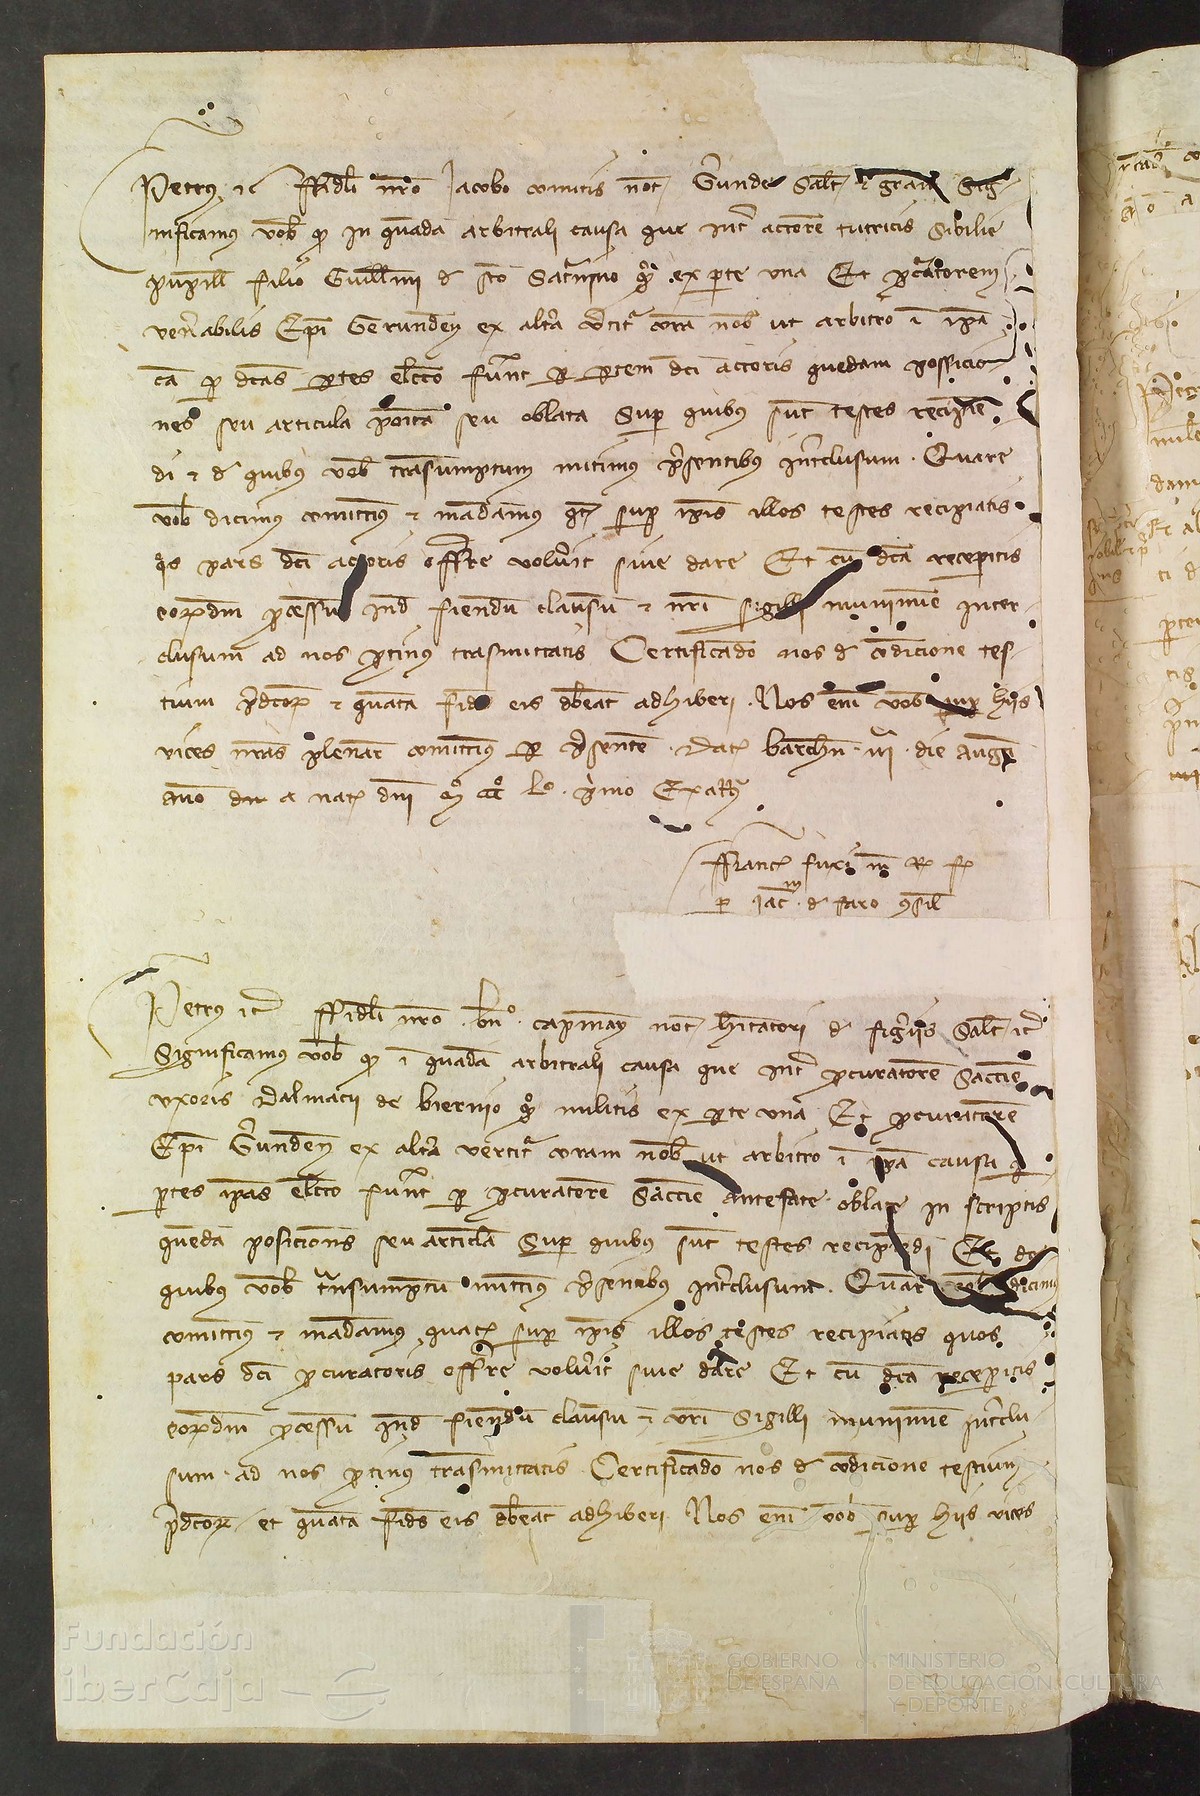 Petrus etc Ffideli nro Jacobo comitis not Gerunde Saltm et gram Sig
nificamus vob qd in quada arbitrali causa que inter actorem tutricis Sibilie
pupille filie Guillmi de sco Saturnino qo ex parte una Et procuratorem
venerabilis Epi Gerunden ex altera vertitur coram nob ut arbitro i ipa
ca p dcas ptes electo fuerunt p partem dci actoris quedam possicio
nes seu articula posita seu oblata Sup quibus sunt testes recipien
di et de quibus vob trasumptum mitimus psentibus interclusum. Quare
vob dicimus comittimus et mandamus qtz sup ipis illos testes recipiatis
qs pars dci actoris offerre voluerit sive dare Et cu dca receperitis
eorumdem pcessu inde fiendum clausu et nri sigilli munimine inter
clusum ad nos protinus trasmittatis Certificando nos de condicione tes
tium pdcor et quanta fides eis debeat adhiberi. Nos eni vob sup hiis
vices nras plenar comittimus p psentem. Dat barchn. iii. die augti
anno a nat dni Mo CCCo Lo. primo Exatr
Ffranc fuxi
p Jacm de faro consil
Petrus etc Ffideli nro bno capmany not hitatori de figeriis Saltm etc
Significamus vob qd i quada arbitrali causa que inter pcuratorem Saccine
uxoris Dalmacii de biernio qo militis ex parte una Et pcuratorem
Epi Gerunden ex altera vertitur coram nob ut arbitro i ipa causa p
ptes ipas electo fuerunt p pcuratorem Saccine antefate oblate in scriptis
queda posiciones seu articla Sup quibus sunt testes recipiedi Et de
quibus vob transumptu mittimus psentibus interclusum. Quare vob dicimus
comittimus et mandamus quatz sup ipis illos testes recipiatis quos
pars dci pcuratoris offerre voluerit sive dare Et cu dca receperitis
eorumdem pcessu inde fiendu clausu et vri Sigilli munimine interclu
sum ad nos protinus trasmittatis. Certificando nos de condicione testium
pdcor et quanta fides eis debeat adhiberi. Nos eni vob sup hiis vices
Fundación
iberCaja
GOBIERNO
DE ESPAÑA
MINISTERIO
DE EDUCACIÓN, CULTURA
Y DEPORTE